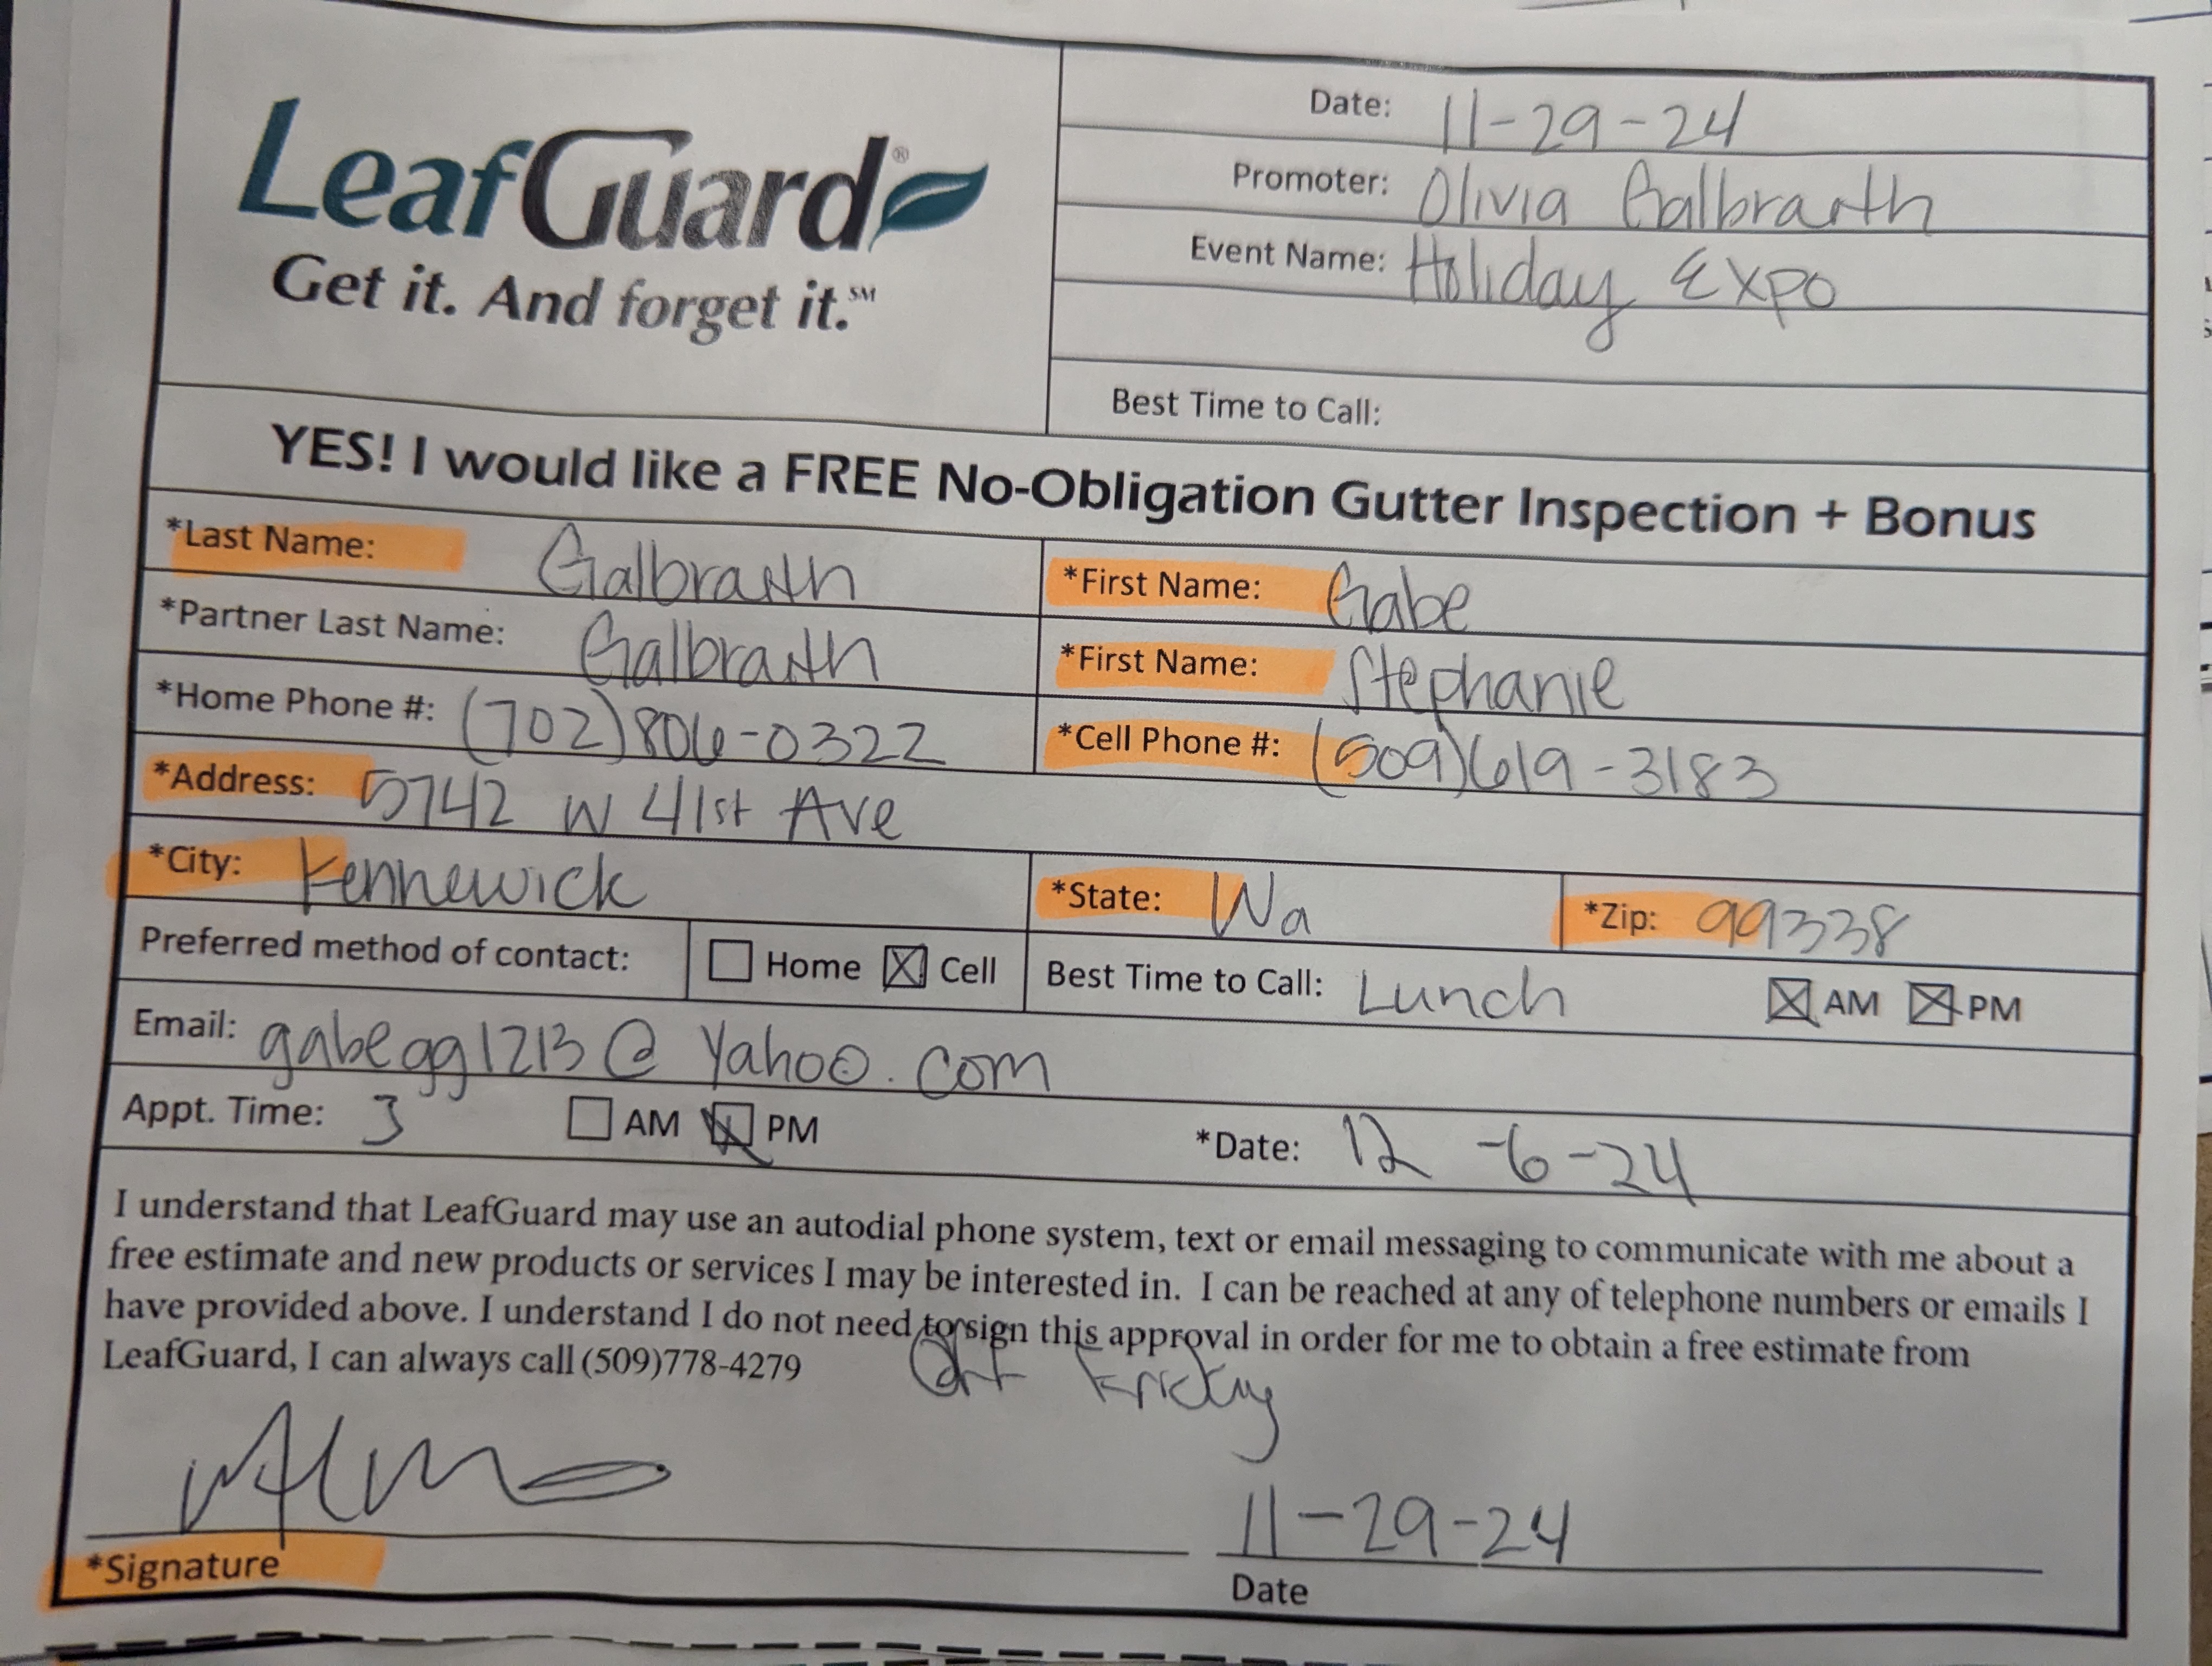 LeafGuard®
Get it. And forget it.℠
Date: 11-29-24
Promoter: Olivia Galbraith
Event Name: Holiday Expo
Best Time to Call:
YES! I would like a FREE No-Obligation Gutter Inspection + Bonus
*Last Name: Galbraith *First Name: Gabe
*Partner Last Name: Galbraith *First Name: Stephanie
*Home Phone #: (702)806-0322 *Cell Phone #: (509)619-3183
*Address: 5742 W 41st Ave
*City: Kennewick *State: Wa *Zip: 99338
Preferred method of contact: ☐ Home ☒ Cell Best Time to Call: Lunch ☒ AM ☒ PM
Email: gabegg1213@yahoo.com
Appt. Time: 3 ☐ AM ☒ PM *Date: 12-6-24
I understand that LeafGuard may use an autodial phone system, text or email messaging to communicate with me about a
free estimate and new products or services I may be interested in. I can be reached at any of telephone numbers or emails I
have provided above. I understand I do not need to sign this approval in order for me to obtain a free estimate from
LeafGuard, I can always call (509)778-4279
Friday
11-29-24
*Signature Date